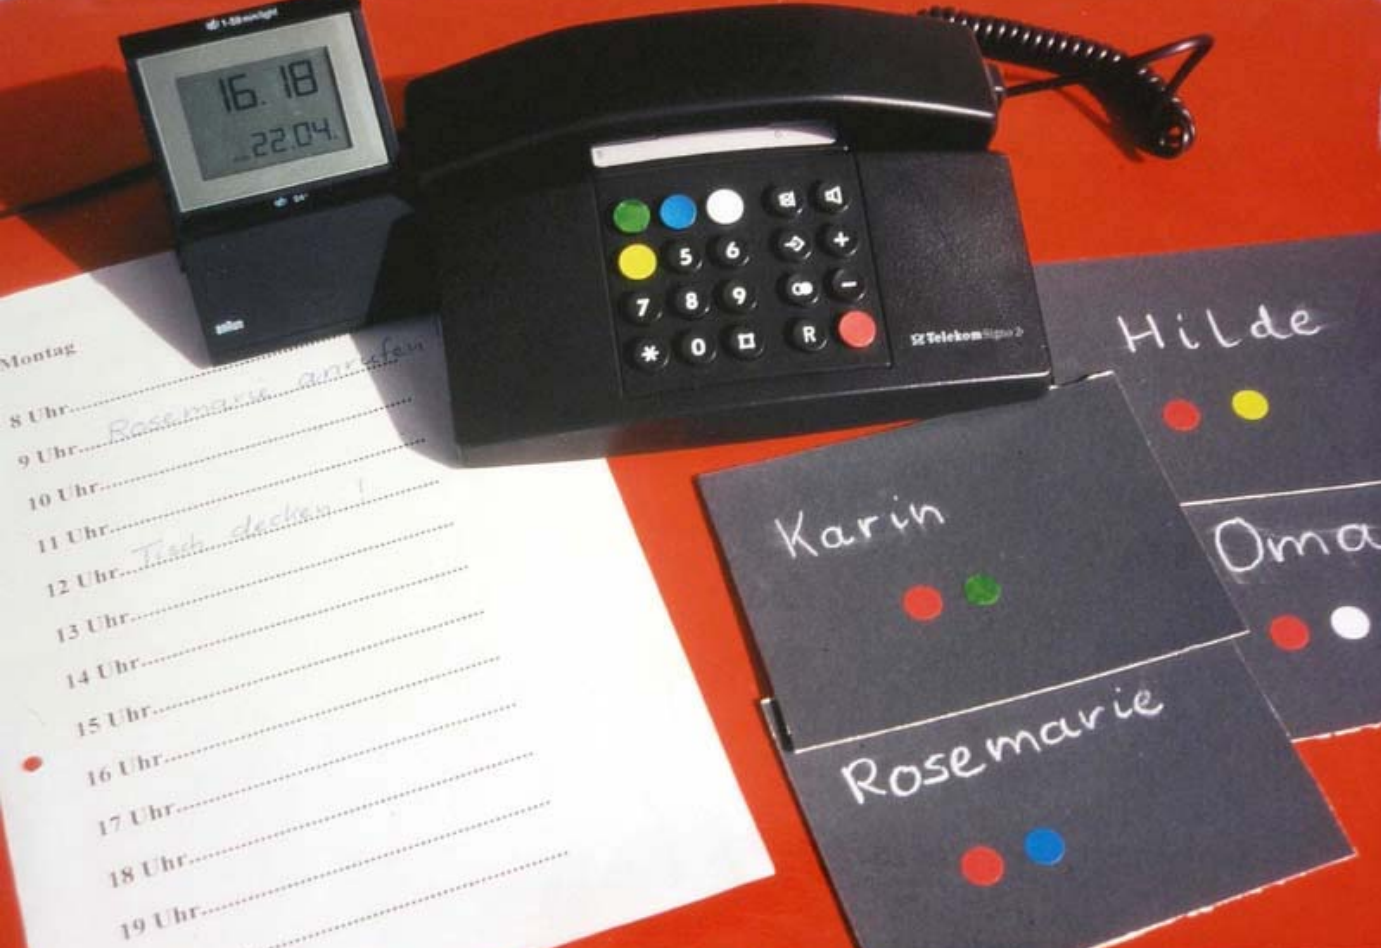 16.18
22.04.
BRAUN
5 6
7 8 9
* 0 R
+
-
Telekom Signo 2
Montag
8 Uhr
9 Uhr Rosemarie anrufen
10 Uhr
11 Uhr
12 Uhr Tisch decken !
13 Uhr
14 Uhr
15 Uhr
16 Uhr
17 Uhr
18 Uhr
19 Uhr
Hilde
Karin
Oma
Rosemarie